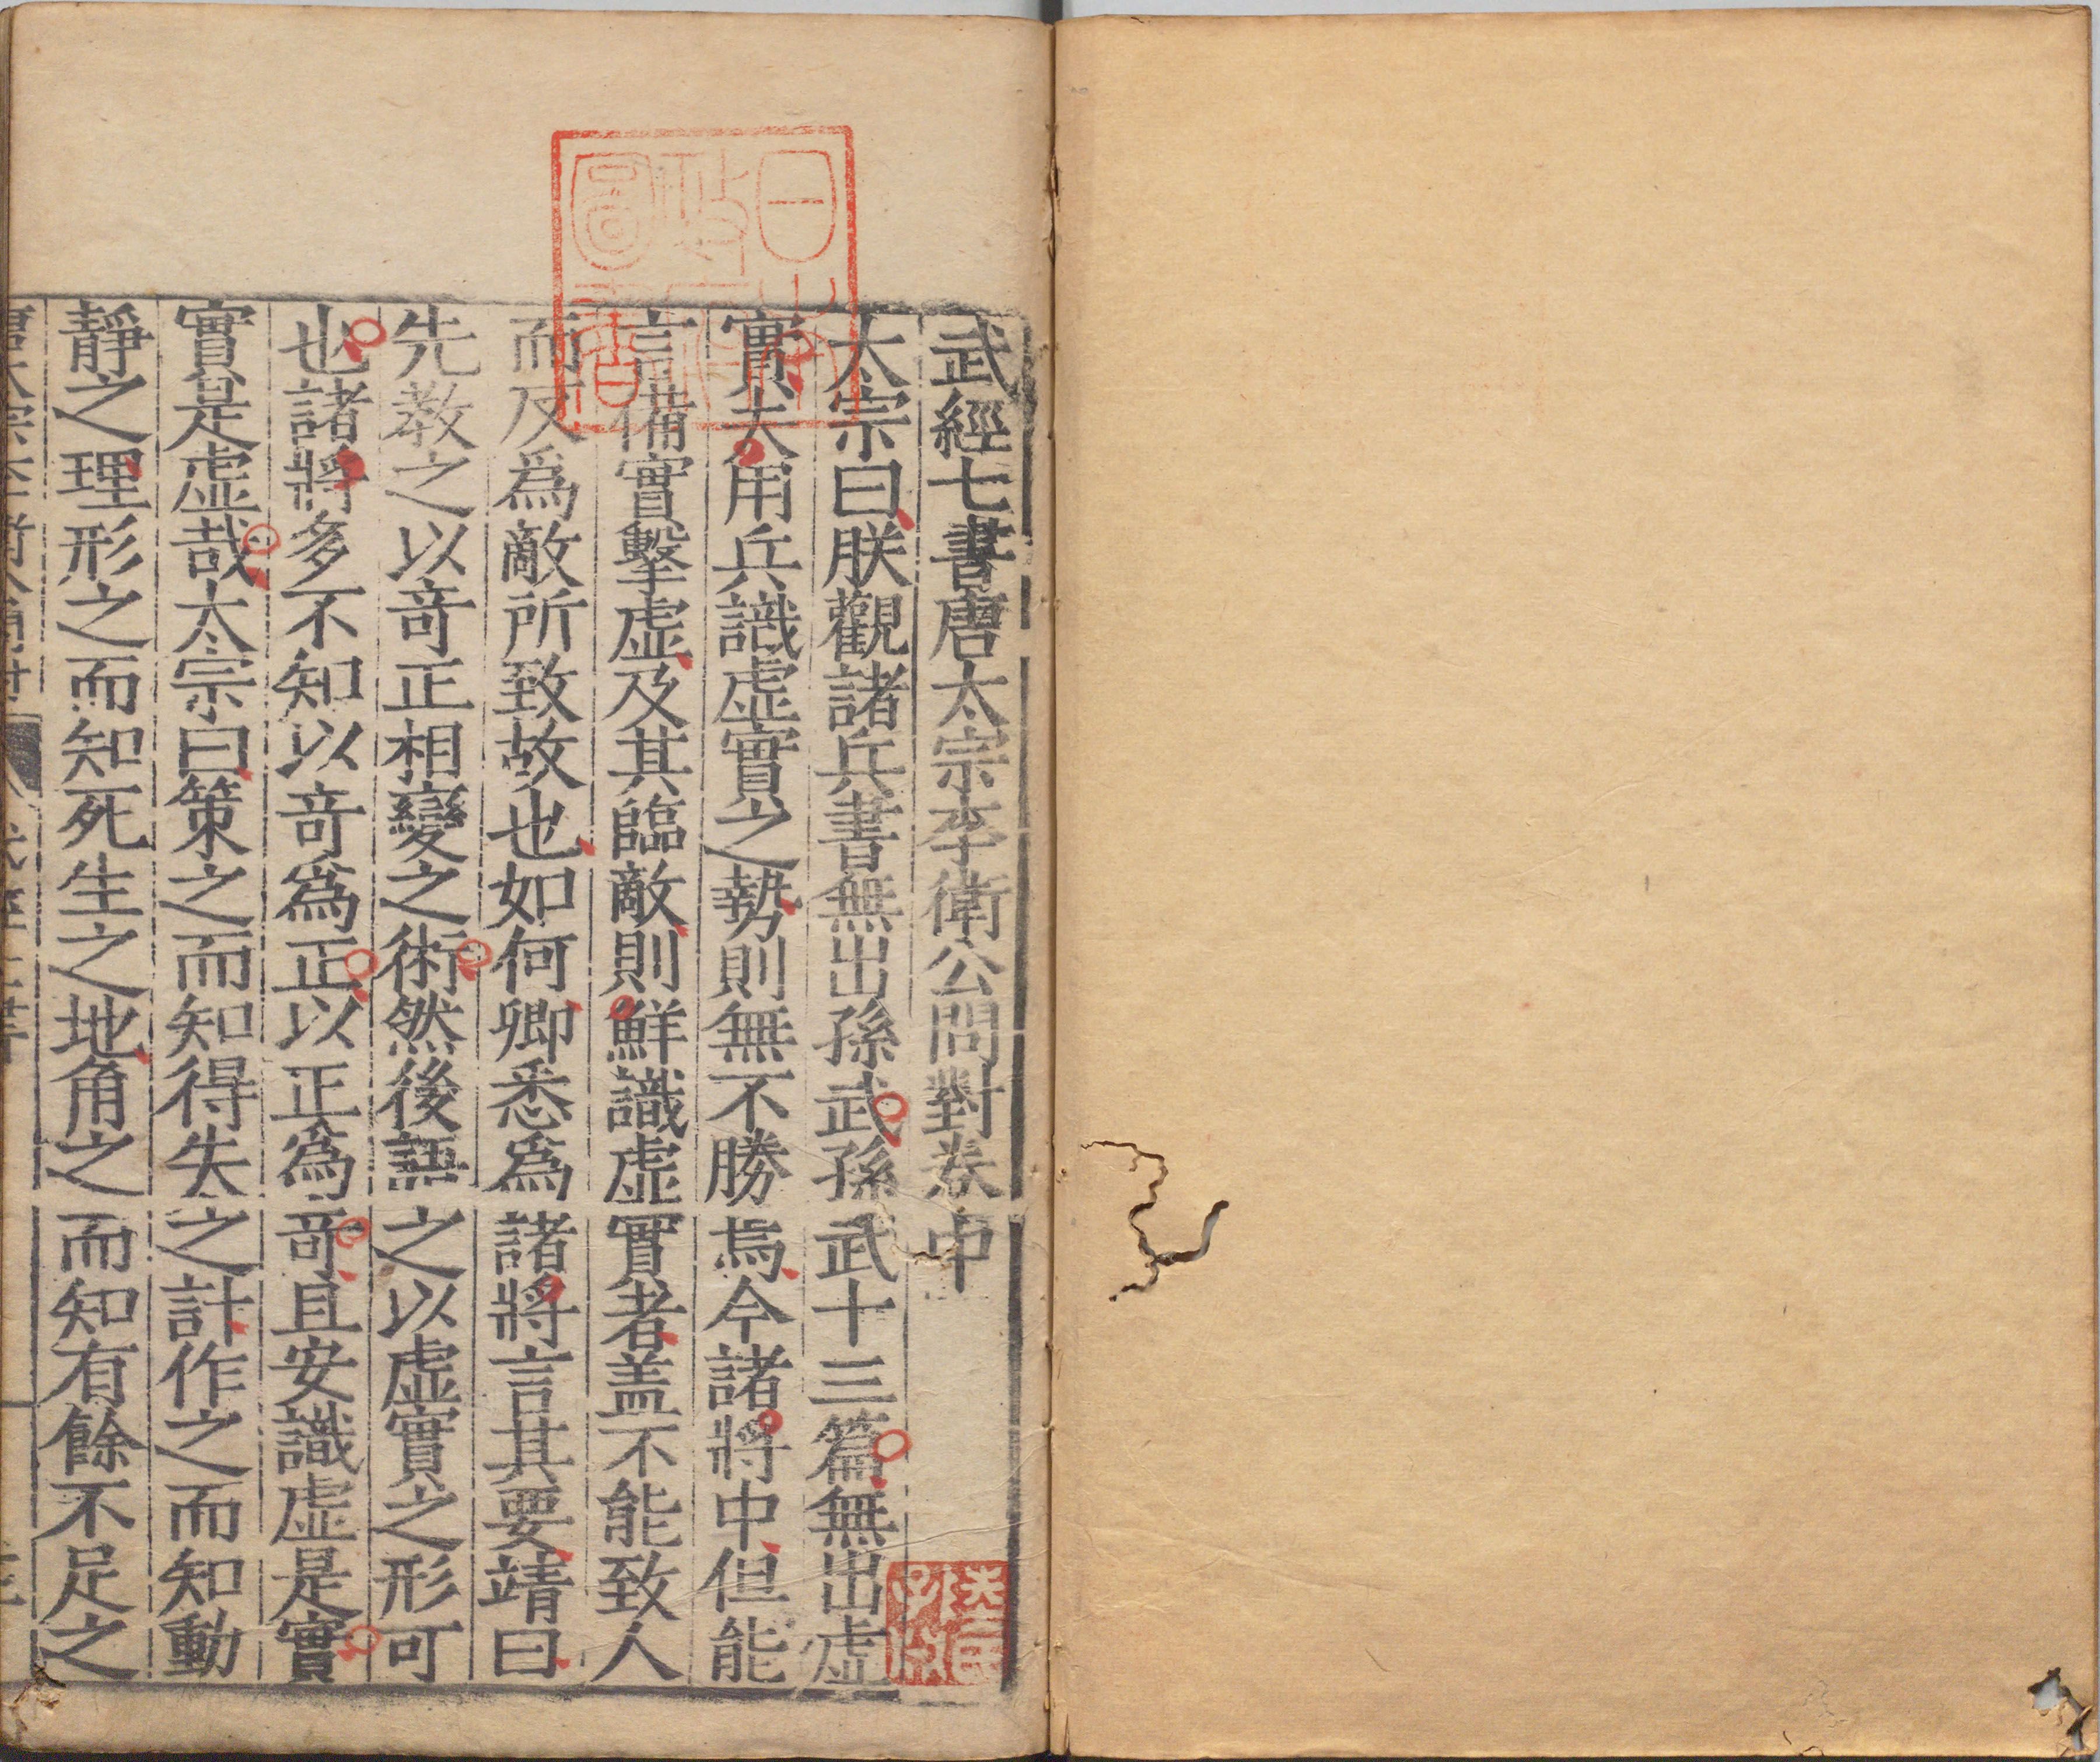 武經七書唐太宗李衛公問對卷中
太宗曰朕觀諸兵書無出孫武孫武十三篇無出虛
實夫用兵識虛實之勢則無不勝焉今諸將中但能
言備實擊虛及其臨敵則鮮識虛實者盖不能致人
而反爲敵所致故也如何卿悉爲諸將言其要靖曰
先教之以竒正相變之術然後語之以虛實之形可
也諸將多不知以竒爲正以正爲竒且安識虛是實
實是虛哉太宗曰策之而知得失之計作之而知動
靜之理形之而知死生之地角之而知有餘不足之